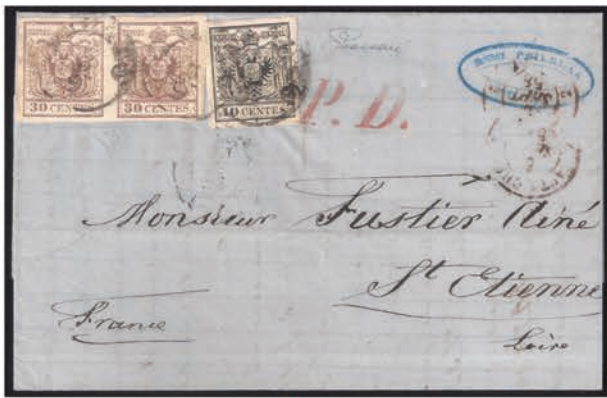 30 CENTES. 30 CENTES. 10 CENTES.
P.D.
Monsieur Fustier Ainé
St Etienne
France
Loire